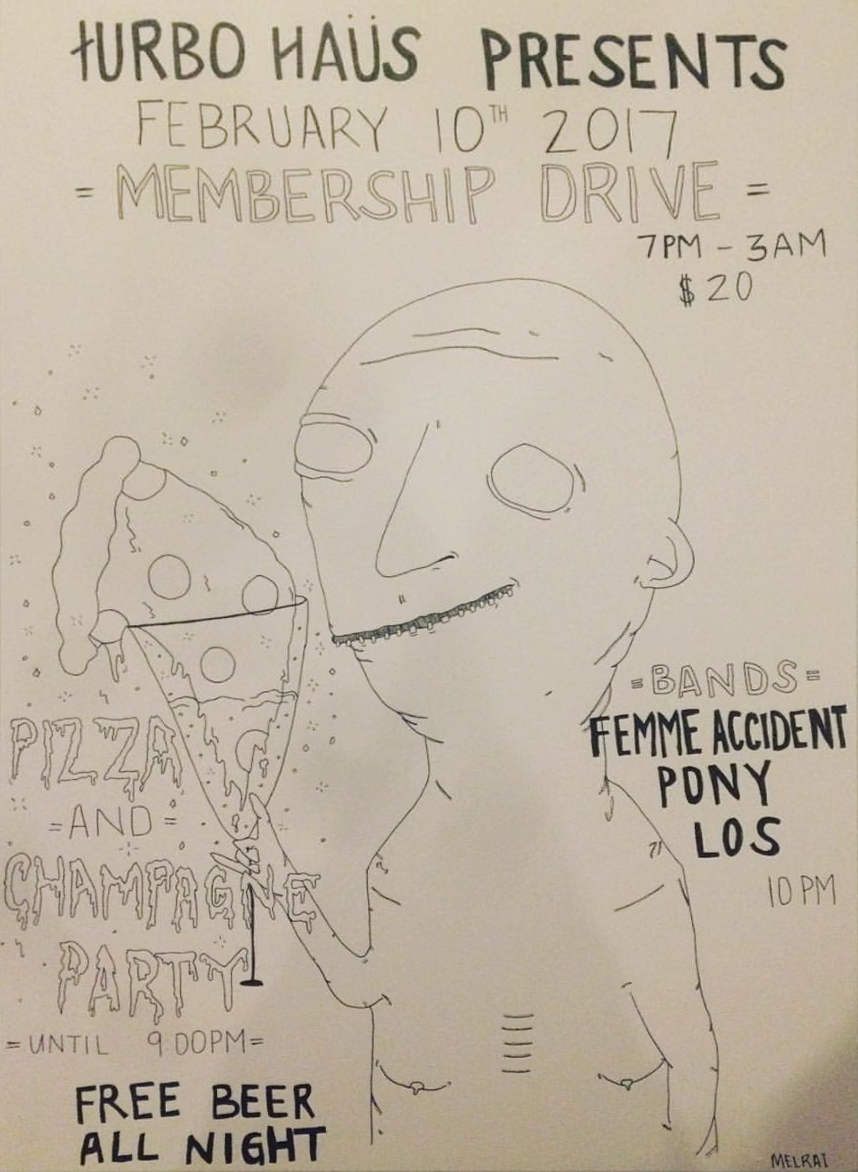 tURBO HAÜS PRESENTS
FEBRUARY 10TH 2017
= MEMBERSHIP DRIVE =
7PM - 3AM
$20
PIZZA
=AND=
CHAMPAGNE
PARTY
=UNTIL 9:00PM=
FREE BEER
ALL NIGHT
=BANDS=
FEMME ACCIDENT
PONY
LOS
10PM
MELRAT